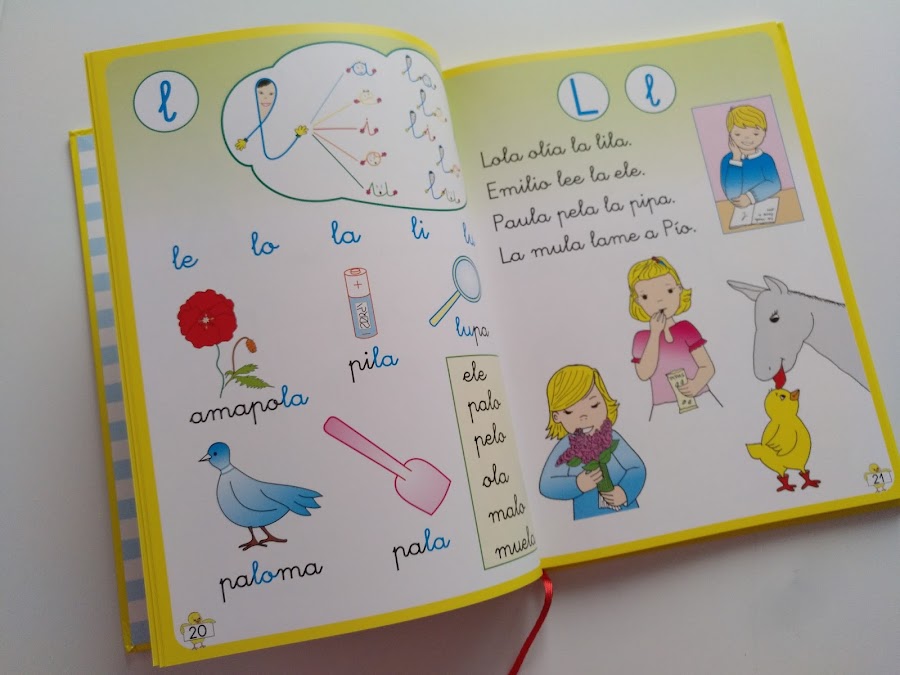 l
la
la
le
li
le lo la li lu
amapola
pila
lupa
paloma
pala
ele
palo
pelo
ola
malo
muela
20
L l
Lola olía la lila.
Emilio lee la ele.
Paula pela la pipa.
La mula lame a Pío.
21